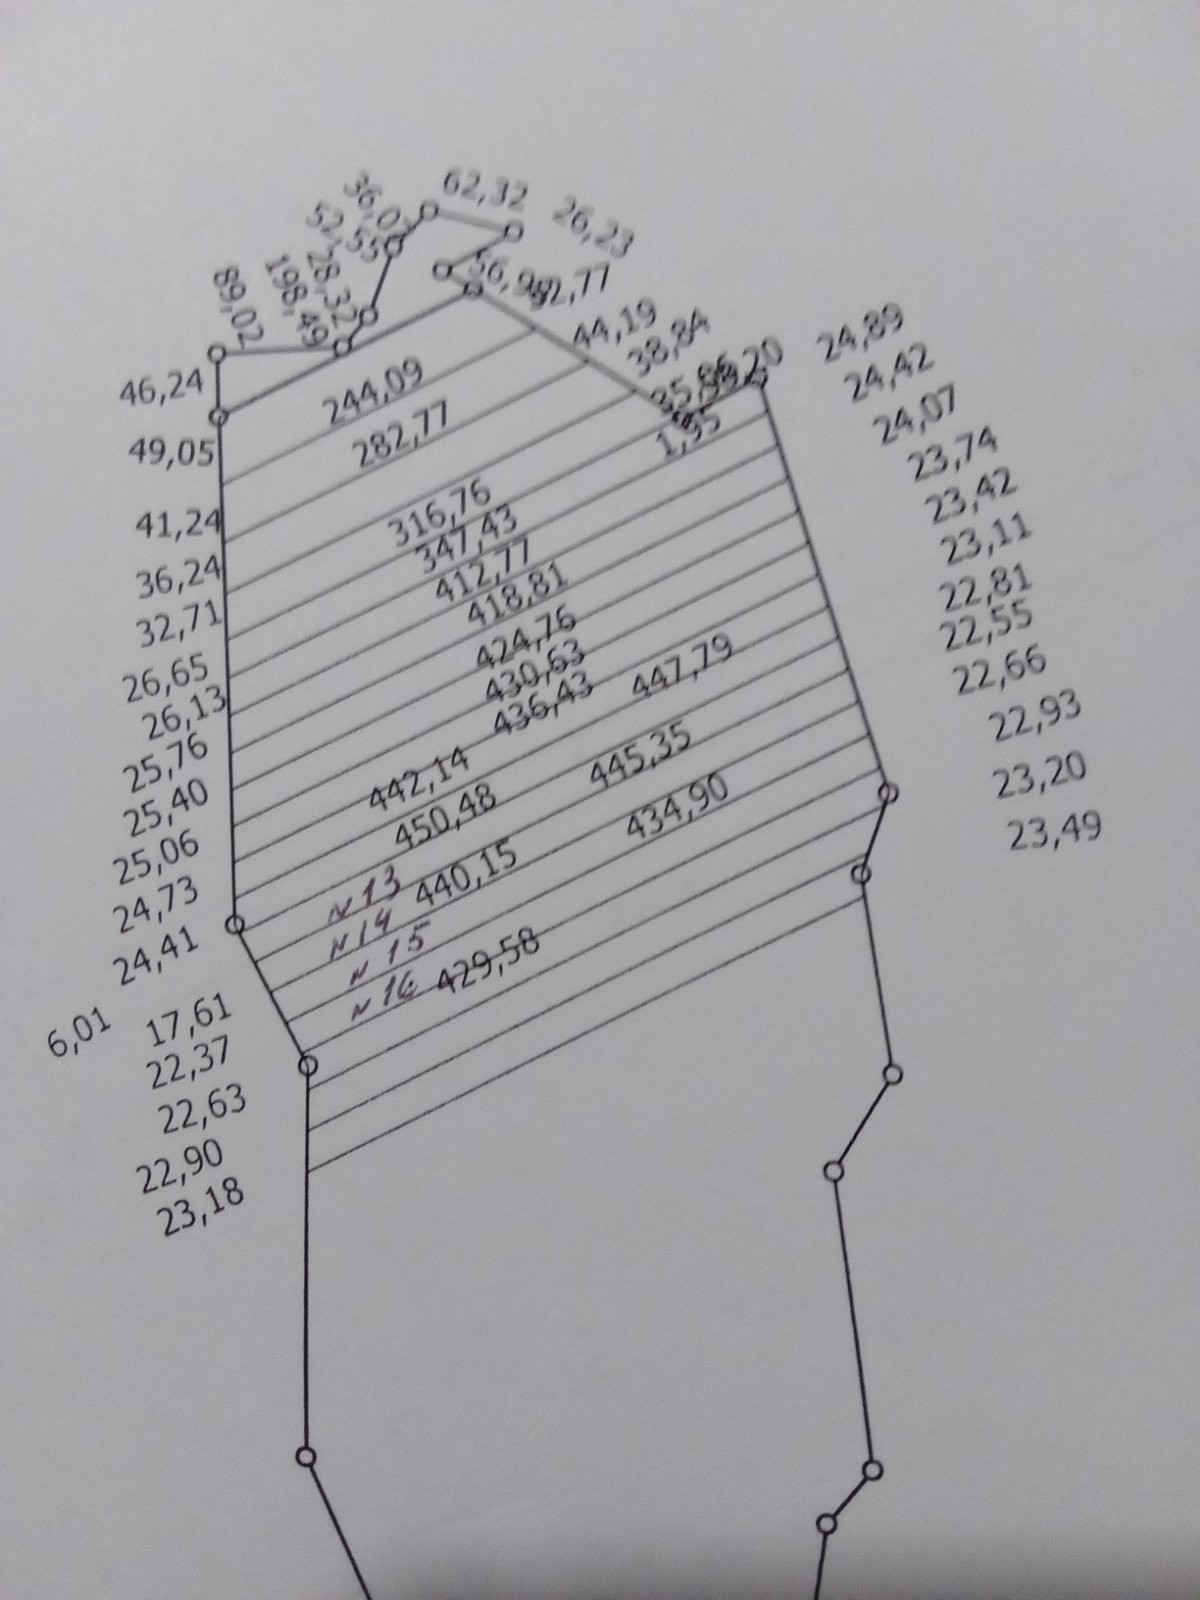 62,32
36,07
52,55
26,23
28,32
198,49
89,02
44,19
38,84
24,89
24,42
46,24
244,09
24,07
282,77
1,95
49,05
23,74
23,42
41,24
316,76
347,43
23,11
36,24
412,77
418,81
22,81
32,71
424,76
22,55
26,65
430,63
447,79
22,66
26,13
436,43
25,76
22,93
25,40
442,14
445,35
23,20
25,06
450,48
434,90
23,49
24,73
N13
440,15
24,41
N14
N15
429,58
N16
6,01
17,61
22,37
22,63
22,90
23,18